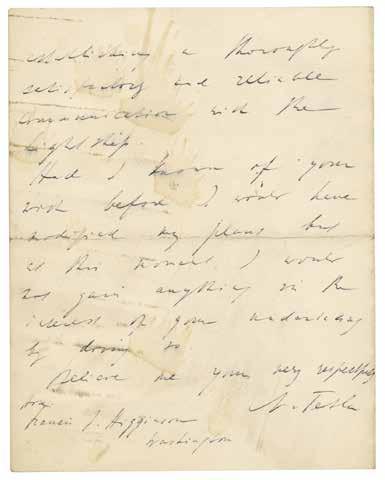 establishing a thoroughly
satisfactory and reliable
communication with the
Lightship.
Had I known of your
wish before I would have
modified my plans but
at this moment I would
not gain anything in the
interest of your undertaking
by doing so
Believe me yours very respectfully
N. Tesla
Francis J. Higginson
Washington